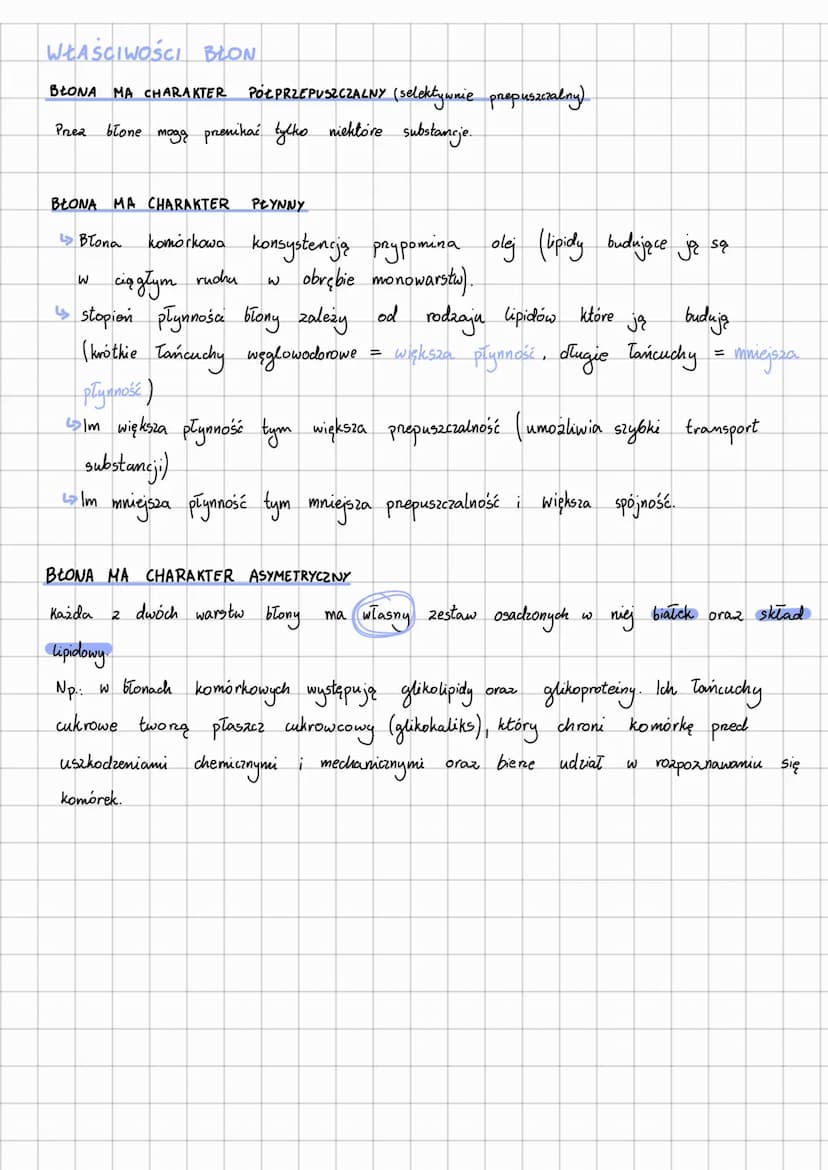 WŁAŚCIWOŚCI BŁON
BŁONA MA CHARAKTER PÓŁPRZEPUSZCZALNY (selektywnie przepuszczalny)
Przez błone mogą przenikać tylko niektóre substancje.
BŁONA MA CHARAKTER PŁYNNY
↳ Błona komórkowa konsystencją przypomina olej (lipidy budujące ją są
w ciągłym ruchu w obrębie monowarstw).
↳ stopień płynności błony zależy od rodzaju lipidów które ją budują
(krótkie łańcuchy węglowodorowe = większa płynność, długie łańcuchy = mniejsza
płynność)
↳ Im większa płynność tym większa przepuszczalność (umożliwia szybki transport
substancji)
↳ Im mniejsza płynność tym mniejsza przepuszczalność i większa spójność.
BŁONA MA CHARAKTER ASYMETRYCZNY
Każda z dwóch warstw błony ma własny zestaw osadzonych w niej białek oraz skład
lipidowy.
Np.: w błonach komórkowych występują glikolipidy oraz glikoproteiny. Ich łańcuchy
cukrowe tworzą płaszcz cukrowcowy (glikokaliks), który chroni komórkę przed
uszkodzeniami chemicznymi i mechanicznymi oraz bierze udział w rozpoznawaniu się
komórek.